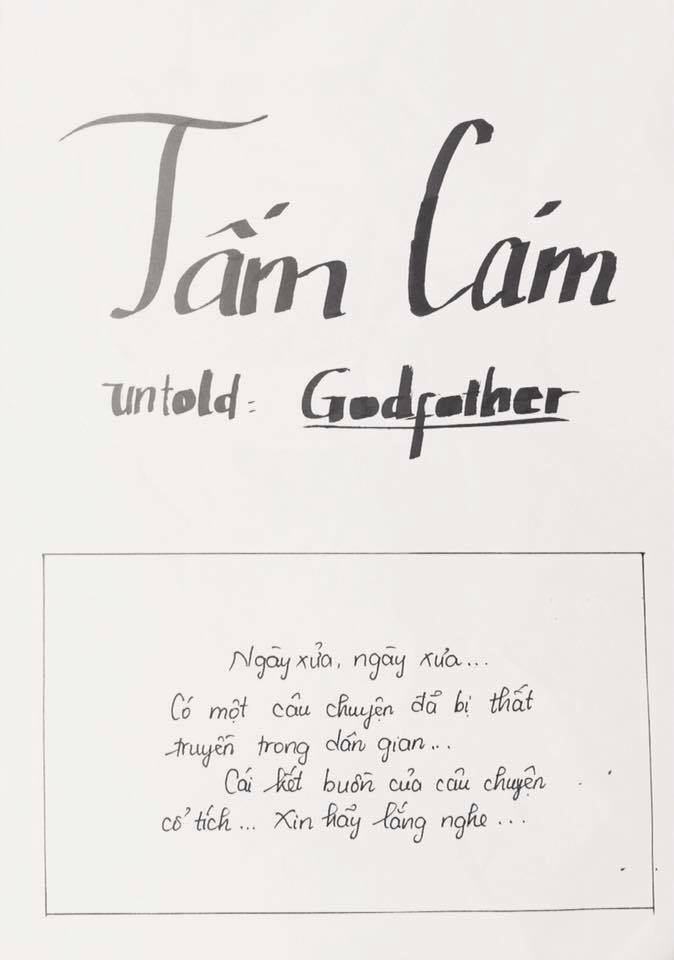 Tấm Cám
untold: Godfather
Ngày xửa, ngày xưa...
Có một câu chuyện đã bị thất
truyền trong dân gian...
Cái kết buồn của câu chuyện
cổ tích... Xin hãy lắng nghe...